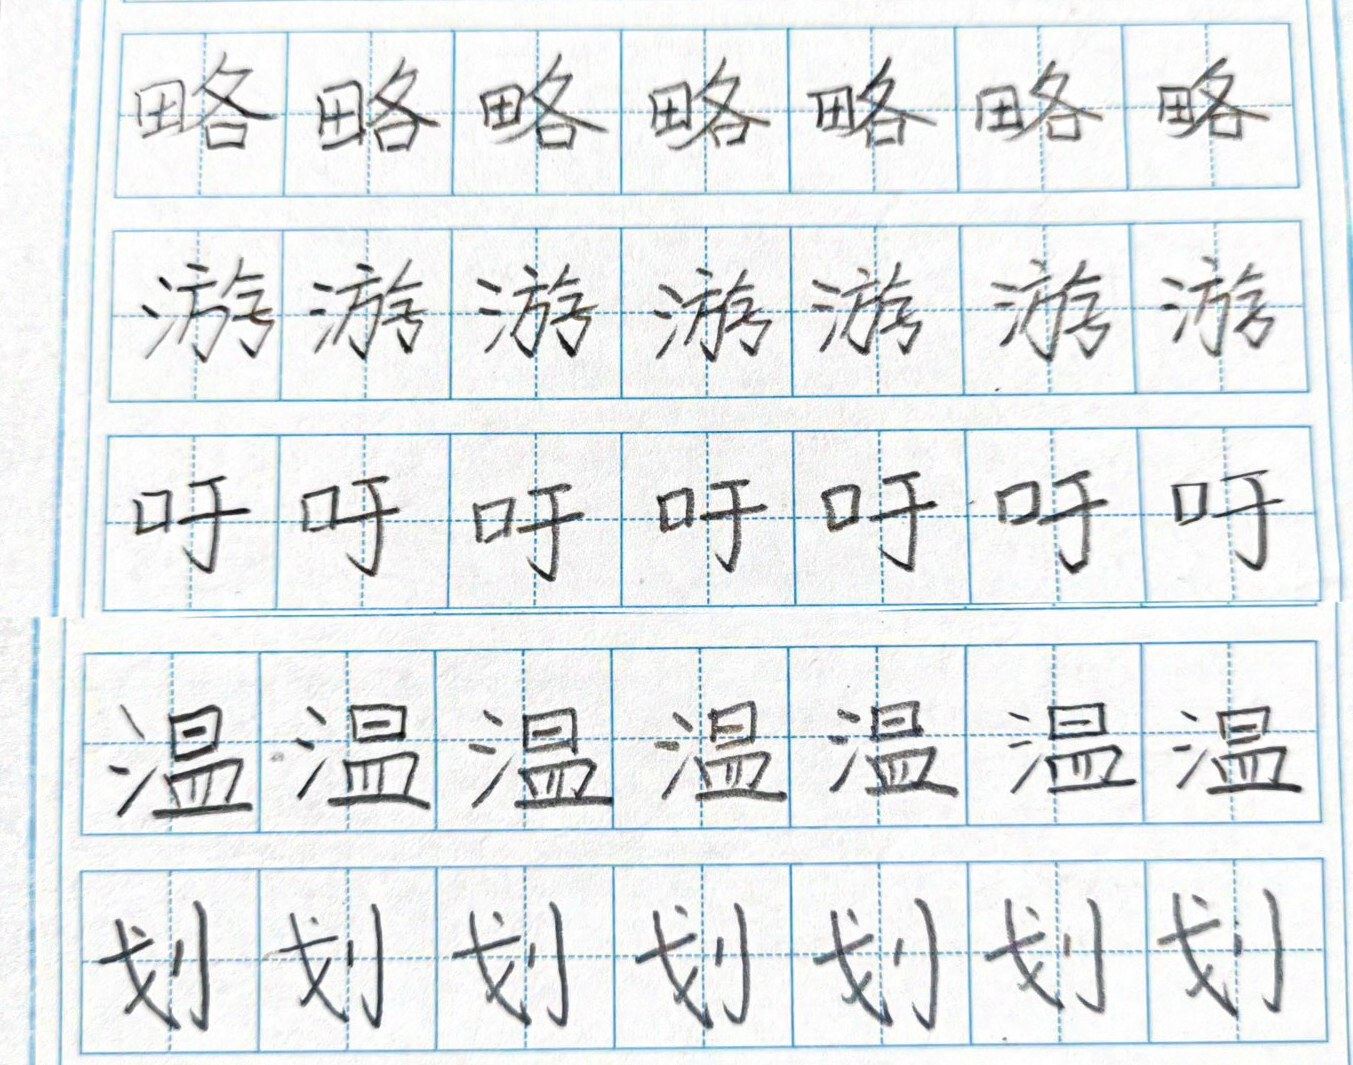 略略略略略略略
游游游游游游游
吁吁吁吁吁吁吁
温温温温温温温
划划划划划划划